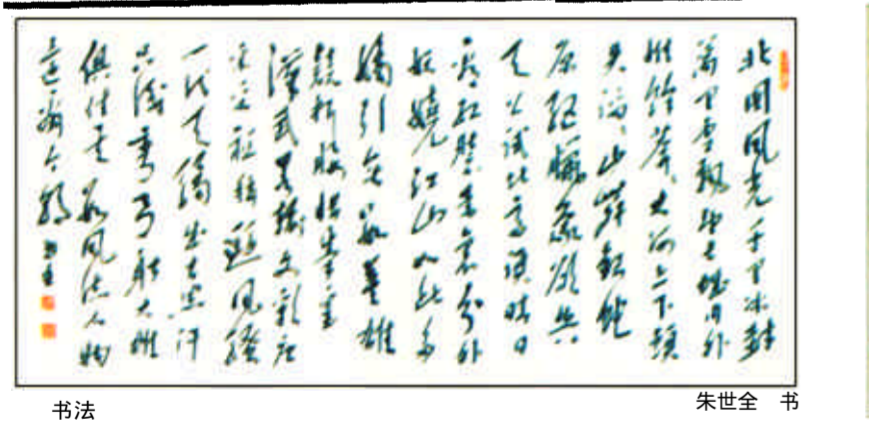 北国风光千里冰封
萬里雪飘望长城内外
惟馀莽莽大河上下顿
失滔滔山舞银蛇
原驰蜡象欲与
天公试比高须晴日
看红装素裹分外
妖娆江山如此多
娇引无数英雄
竞折腰惜秦皇
汉武略输文彩唐
宋宗祖稍逊风骚
一代天骄成吉思汗
只识弯弓射大雕
俱往矣数风流人物
还看今朝
书法
朱世全 书